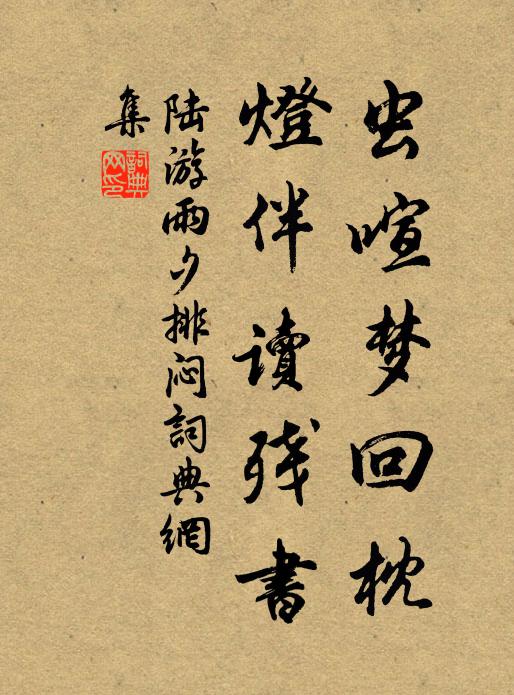 虫喧梦回枕
燈伴读残書
陆游雨夕排闷詞典網
集
詞典
网印